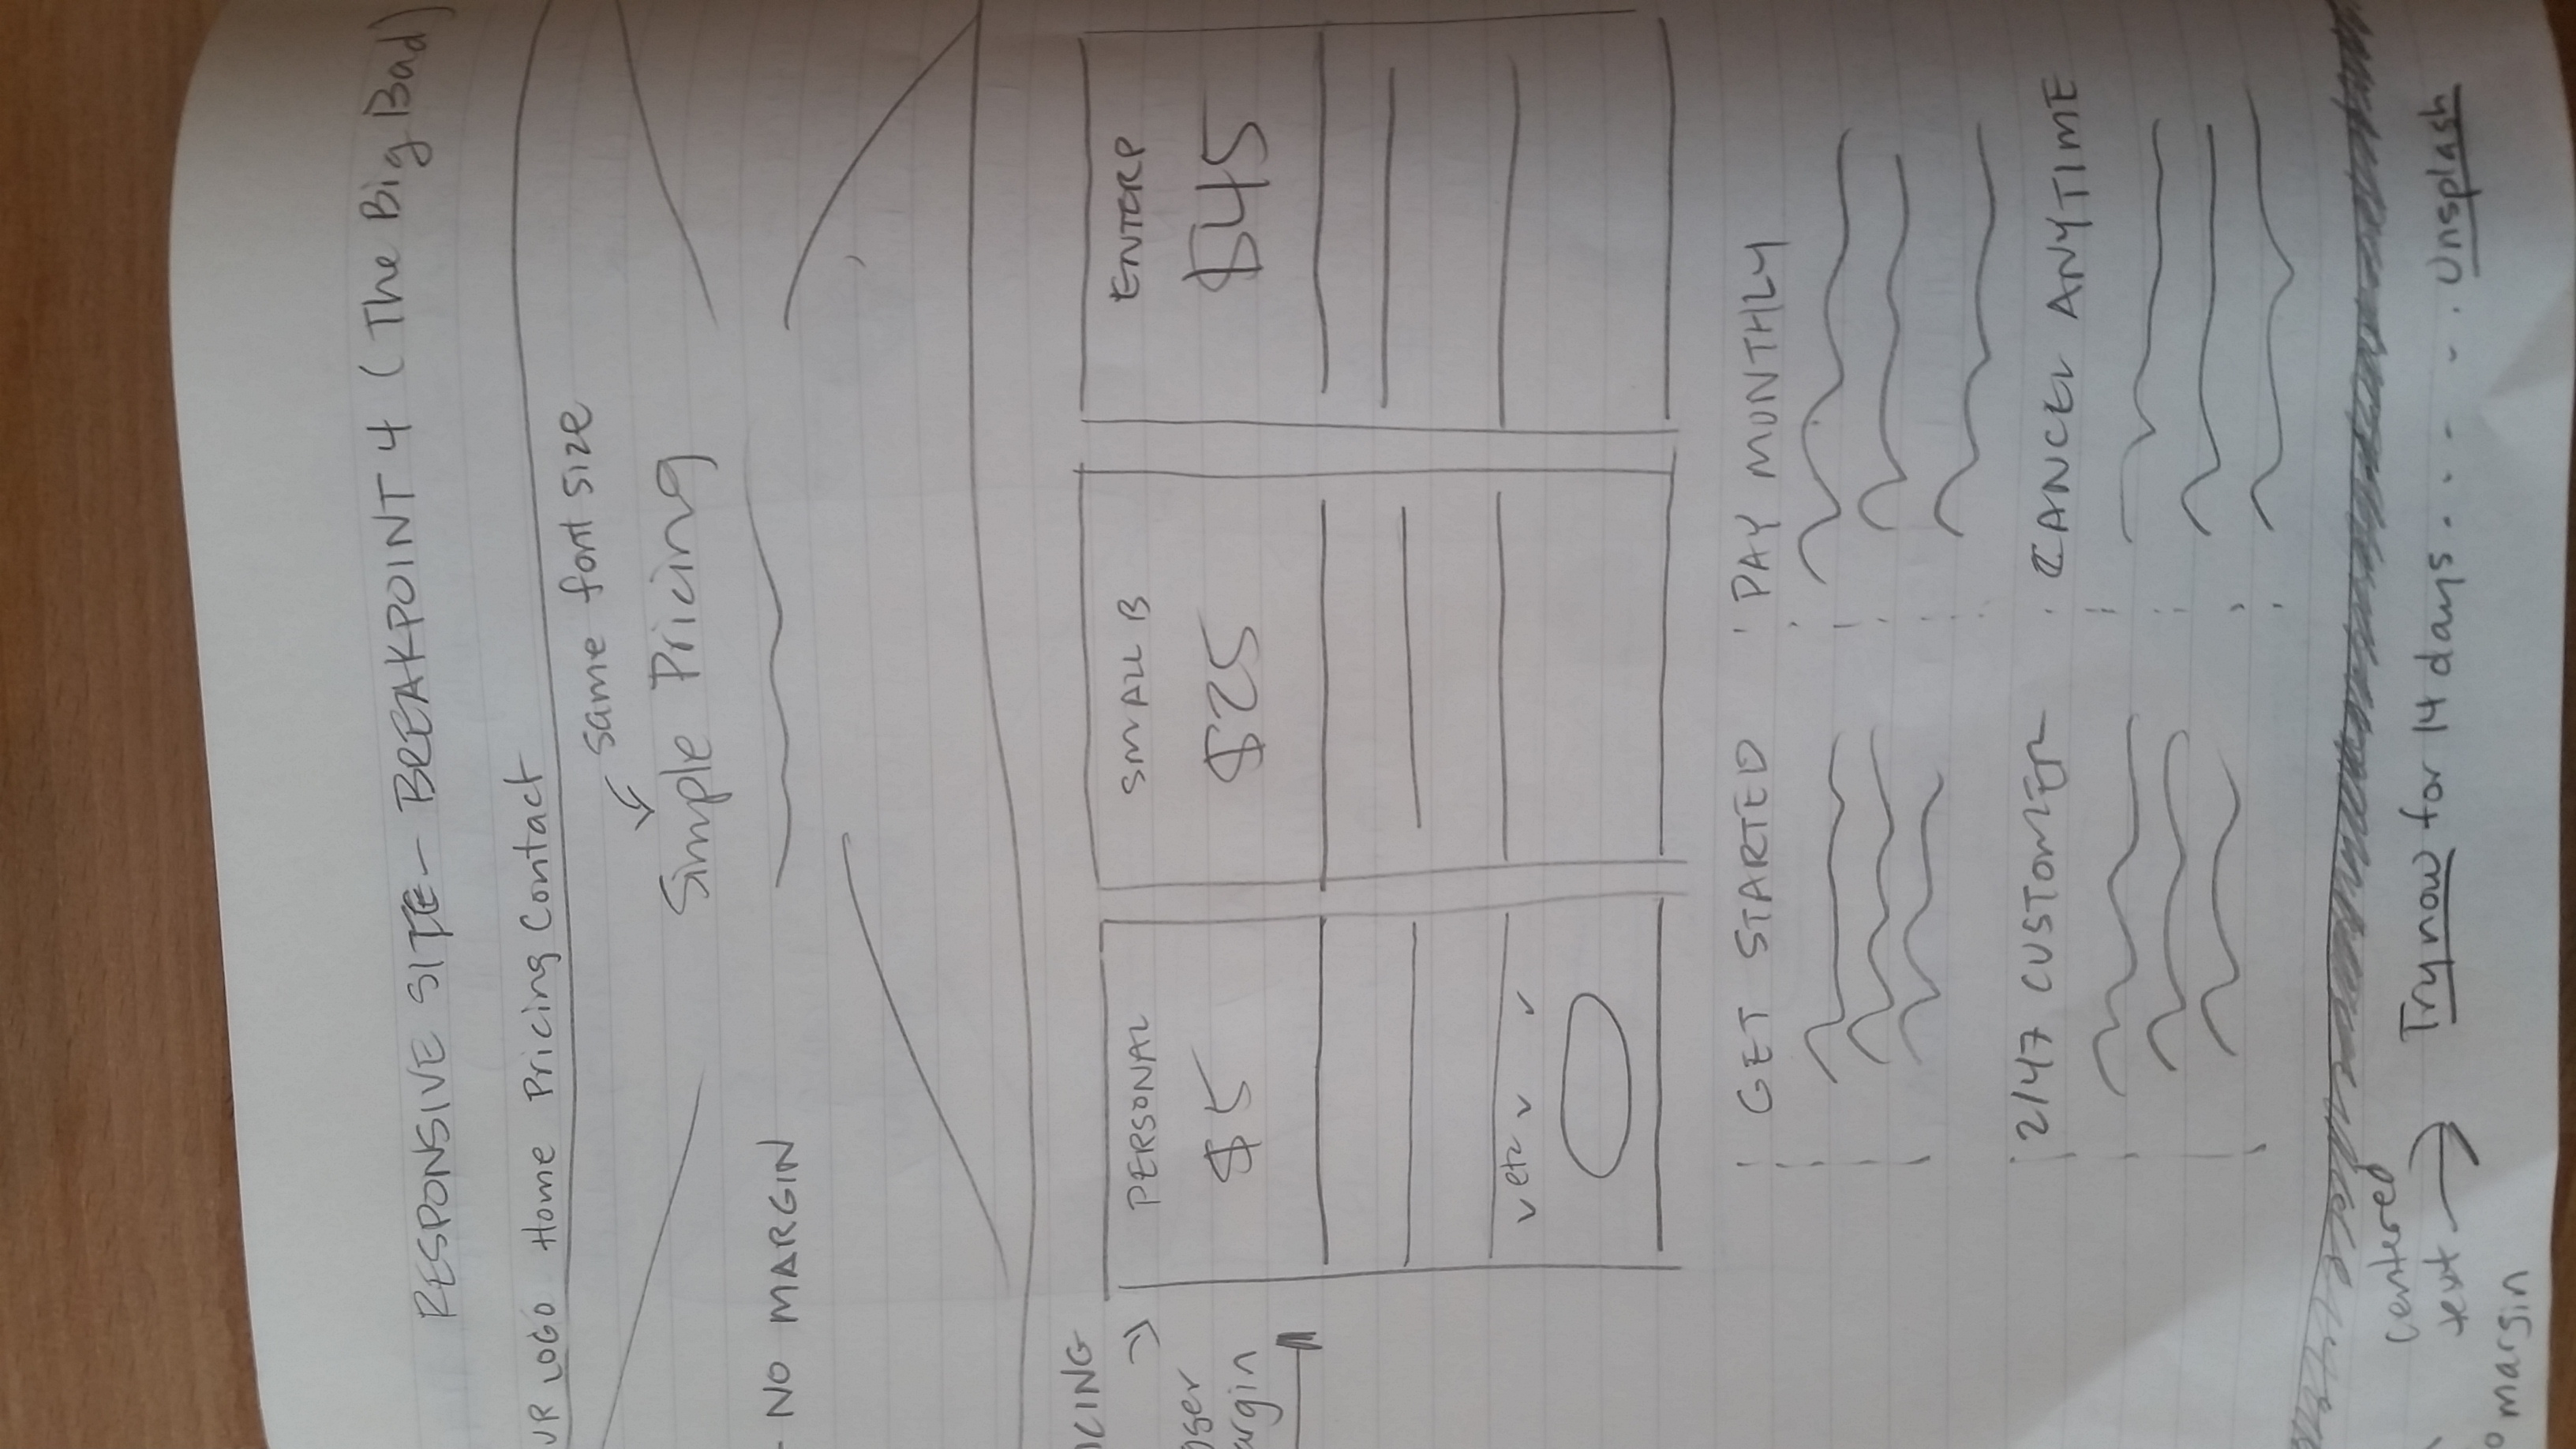 RESPONSIVE SITE - BREAKPOINT 4 (The Big Bad)
UR LOGO Home Pricing Contact
same font size
Simple Pricing
- NO MARGIN
ICING
PERSONAL
SMALL B
ENTERP
oser
argin
$5
$25
$45
etc
GET STARTED
PAY MONTHLY
2/47 CUSTOMER
CANCEL ANYTIME
centered
text
Try now for 14 days . . . . . . Unsplash
o margin